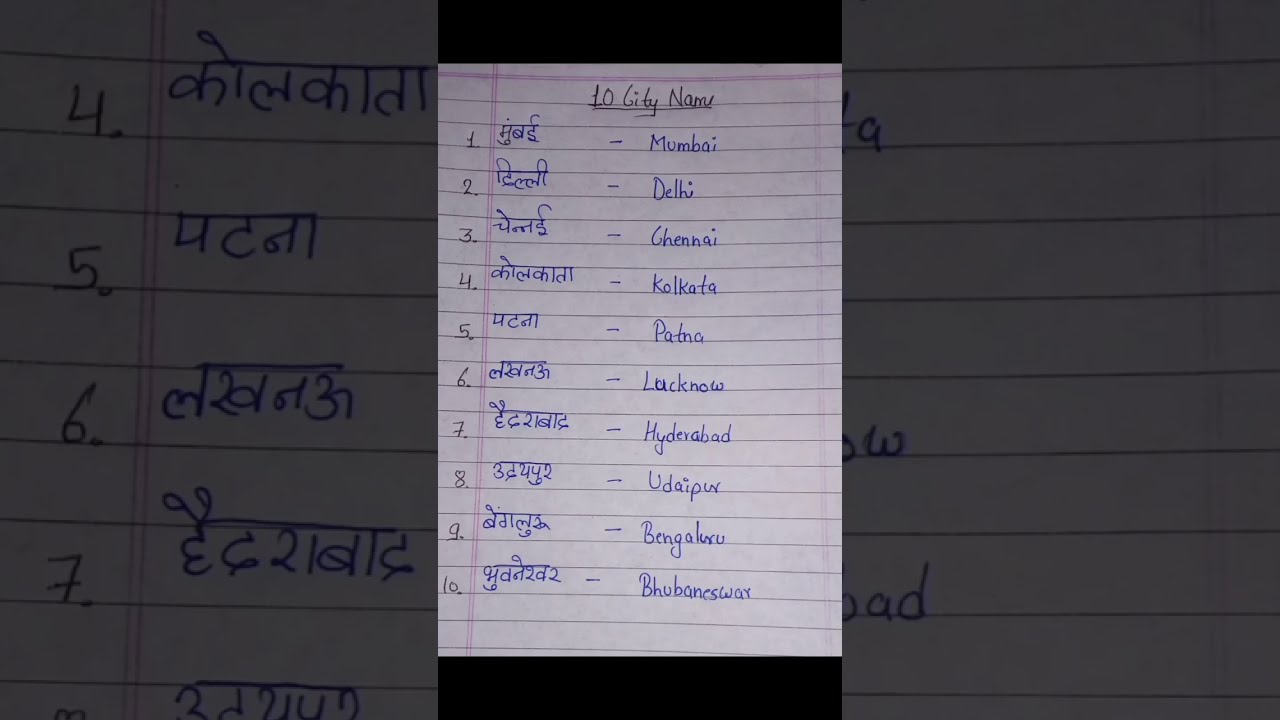 10 City Name
1. मुंबई - Mumbai
2. दिल्ली - Delhi
3. चेन्नई - Chennai
4. कोलकाता - Kolkata
5. पटना - Patna
6. लखनऊ - Lacknow
7. हैदराबाद - Hyderabad
8. उदयपुर - Udaipur
9. बेंगलुरू - Bengaluru
10. भुवनेश्वर - Bhubaneswar
4. कोलकाता
5. पटना
6. लखनऊ
7. हैदराबाद
उदयपुर
ta
ow
bad